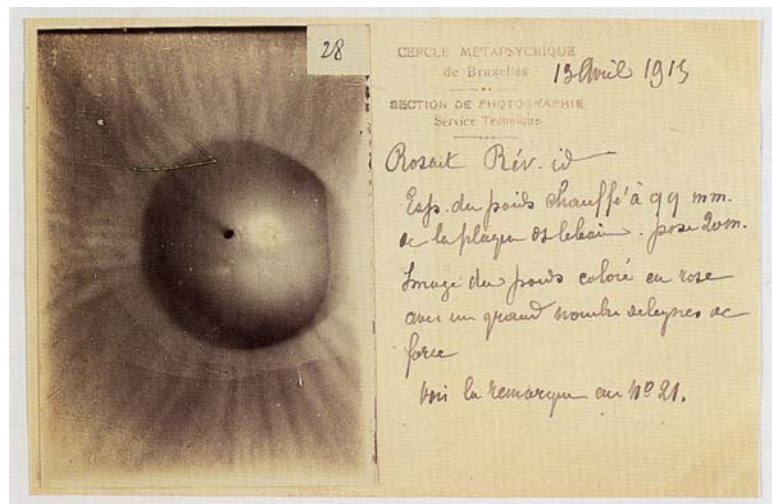 28
CERCLE METAPSYCHIQUE
de Bruxelles
13 Avril 1913
SECTION DE PHOTOGRAPHIE
Service Technique
Rév. id
Exp. du poids chauffé à 99 mm.
de la plaque ds le bain. pose 20m.
Image du poids coloré en rose
avec un grand nombre de lignes de
force
Voir la remarque au No 21.